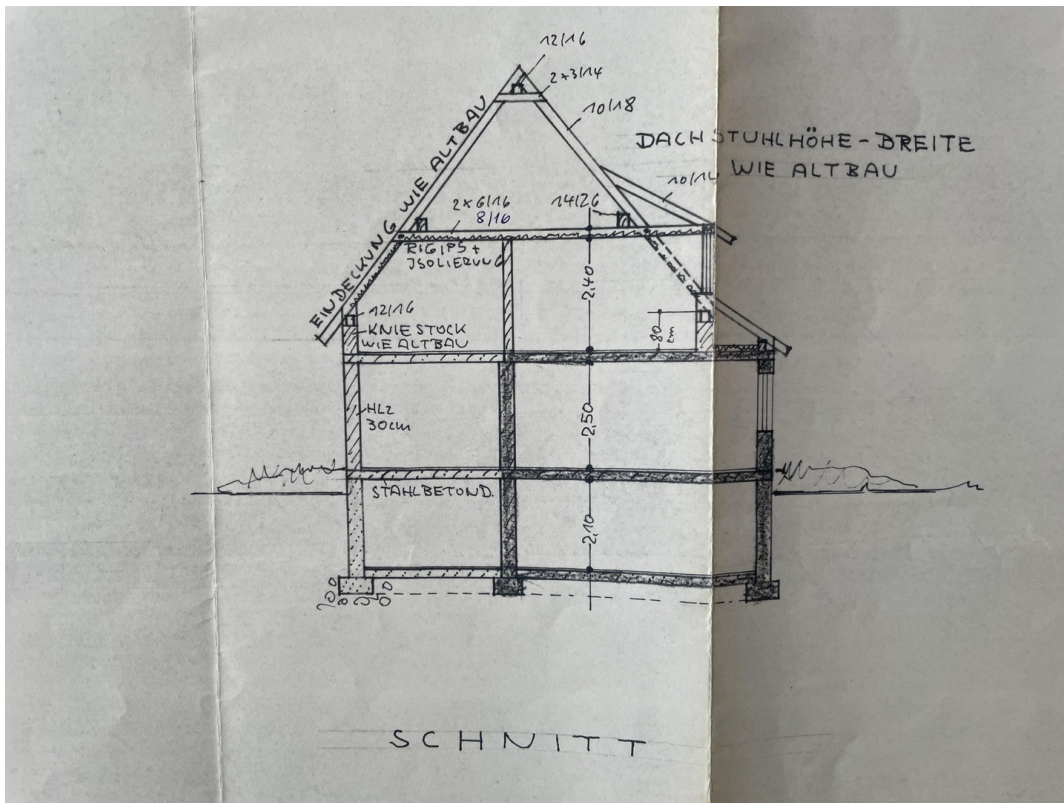 12/16
2×3/14
10/18
DACHSTUHLHÖHE-BREITE
WIE ALTBAU
EINDECKUNG WIE ALTBAU
10/14
2×6/16
8/16
14/26
RIGIPS+
ISOLIERUNG
2,40
12/16
KNIESTOCK
WIE ALTBAU
80
cm
HLZ
30cm
2,50
STAHLBETOND.
2,10
SCHNITT